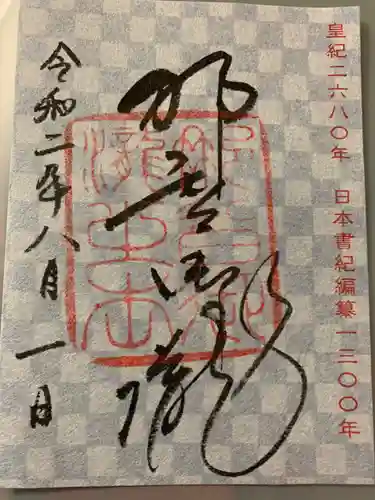 皇紀二六八〇年 日本書紀編纂一三〇〇年
那智御瀧
令和二年八月一日